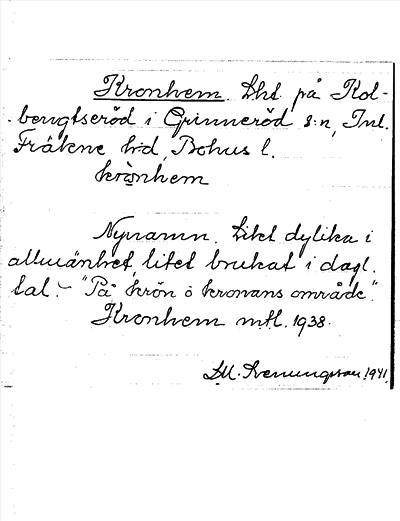 Kronhem. Lht på Kol-
bengtseröd i Grinneröd s:n, Inl.
Fräkne hd, Bohus l.
krònhem
Nynamn. Likt dylika i
allmänhet, litet brukat i dagl.
tal. – "På krón o kronans område".
Kronhem mtl. 1938.
1941.